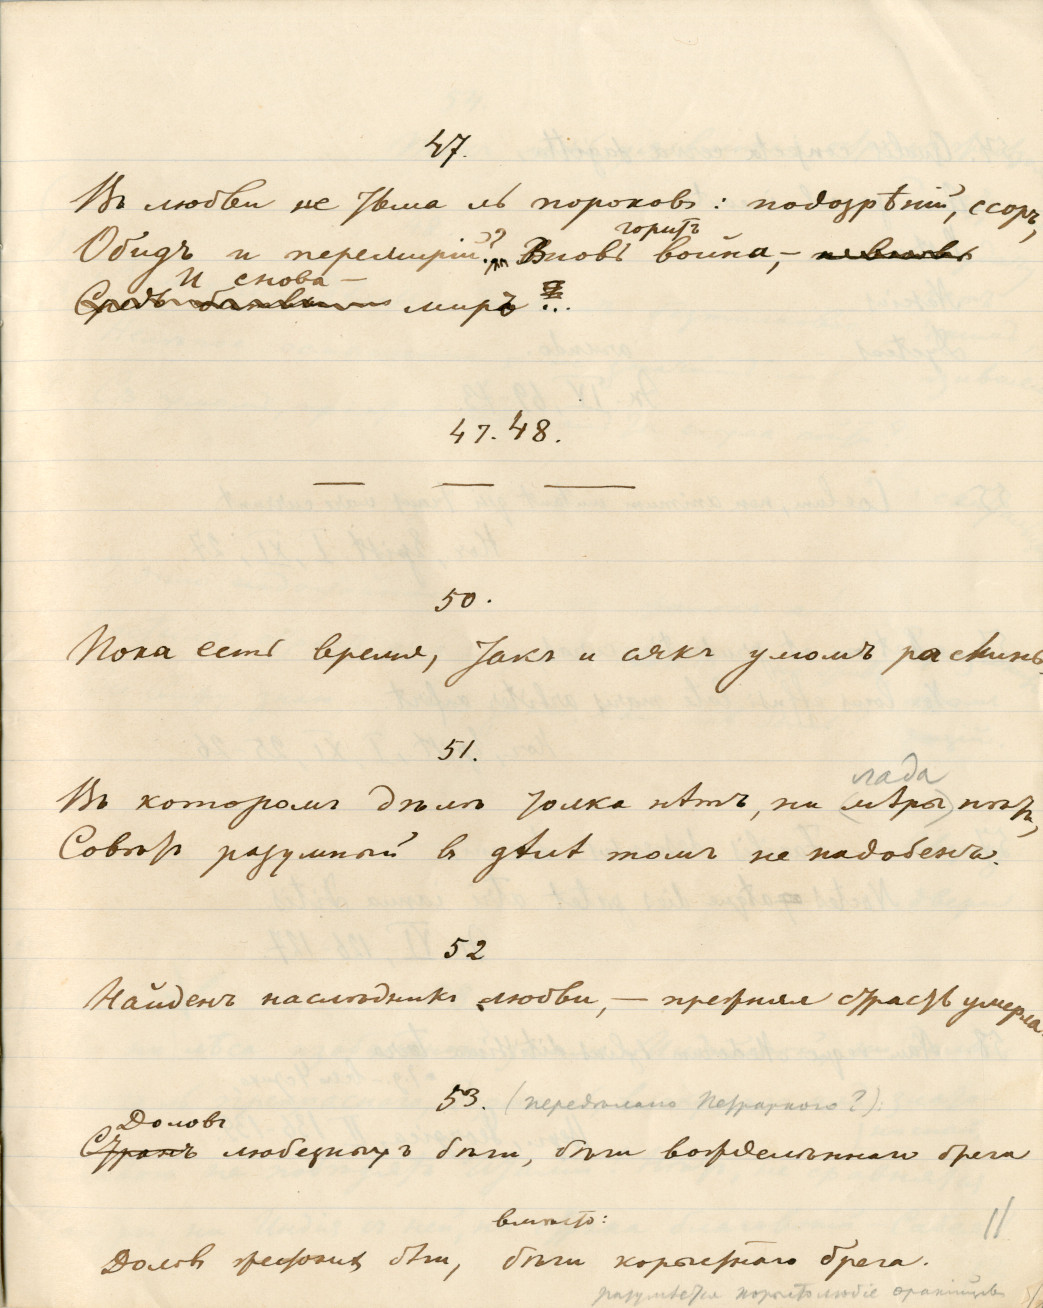 47.
Въ любви не тьма ль пороковъ: подозрѣній, ссоръ,
Обидъ и перемирій? Вновь горитъ война, –
И снова – миръ!..
47. 48.
50.
Пока есть время, такъ и сякъ умомъ раскинь,
51.
Въ которомъ дѣлѣ толка нѣтъ, ни (мѣры) лада нѣтъ,
Совѣтъ разумный в дѣлѣ томъ не надобенъ.
52
Найденъ наслѣдникъ любви, – прежняя страсть умерла.
53. (передѣлано Петраркого?):
Доловъ
Странъ любезныхъ бѣги, бѣги вожделѣннаго брега
вмѣсто:
Доловъ жестокихъ бѣги, бѣги корыстнаго брега.
разумѣется корыстолюбіе
11